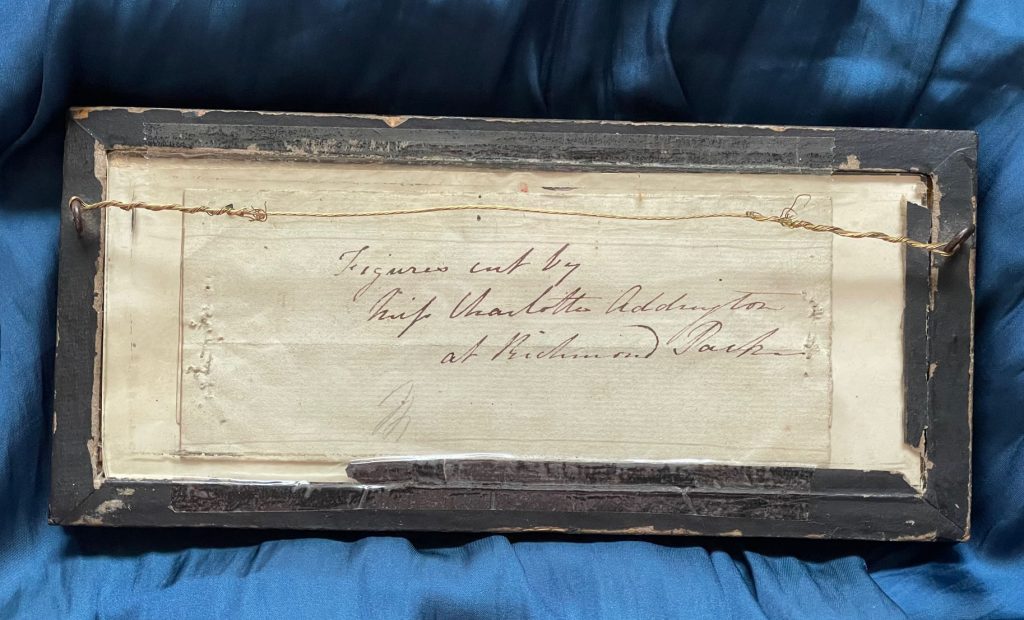 Figures cut by
Miſs Charlotte Addington
at Richmond Park